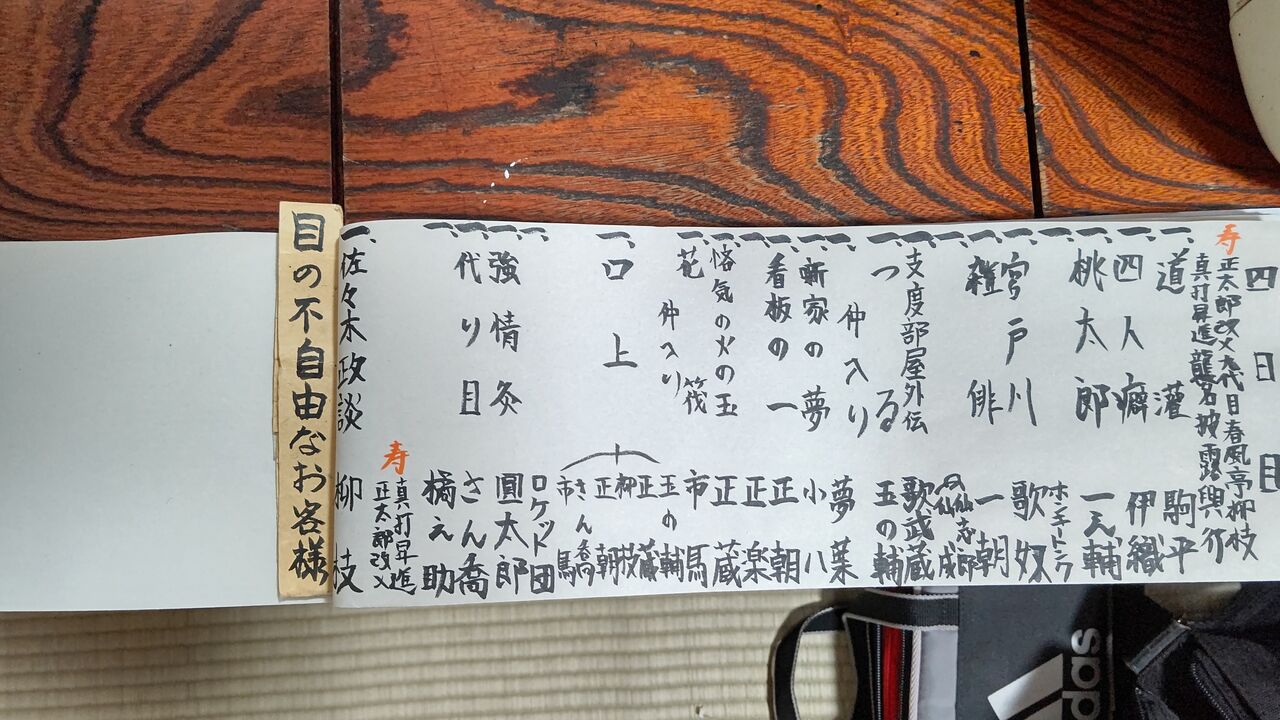 四日目
寿 正太郎改メ九代目春風亭柳枝
真打昇進襲名披露興行
一、道灌 駒平
一、四人癖 伊織
一、桃太郎 一之輔
一、ホンキートンク
一、宮戸川 歌奴
一、雑俳 一朝
一、仙志郎
仙成
一、支度部屋外伝 歌武蔵
一、つる 玉の輔
仲入り
一、夢葉
一、噺家の夢 小八
一、看板の一 正朝
一、正楽
一、悋気の火の玉 正蔵
一、花筏 市馬
仲入り
一、口上
玉の輔
正蔵
柳枝
正朝
さん喬
市馬
一、ロケット団
一、強情灸 圓太郎
一、代り目 さん喬
一、橘之助
寿 真打昇進
正太郎改メ
一、佐々木政談 柳枝
目の不自由なお客様